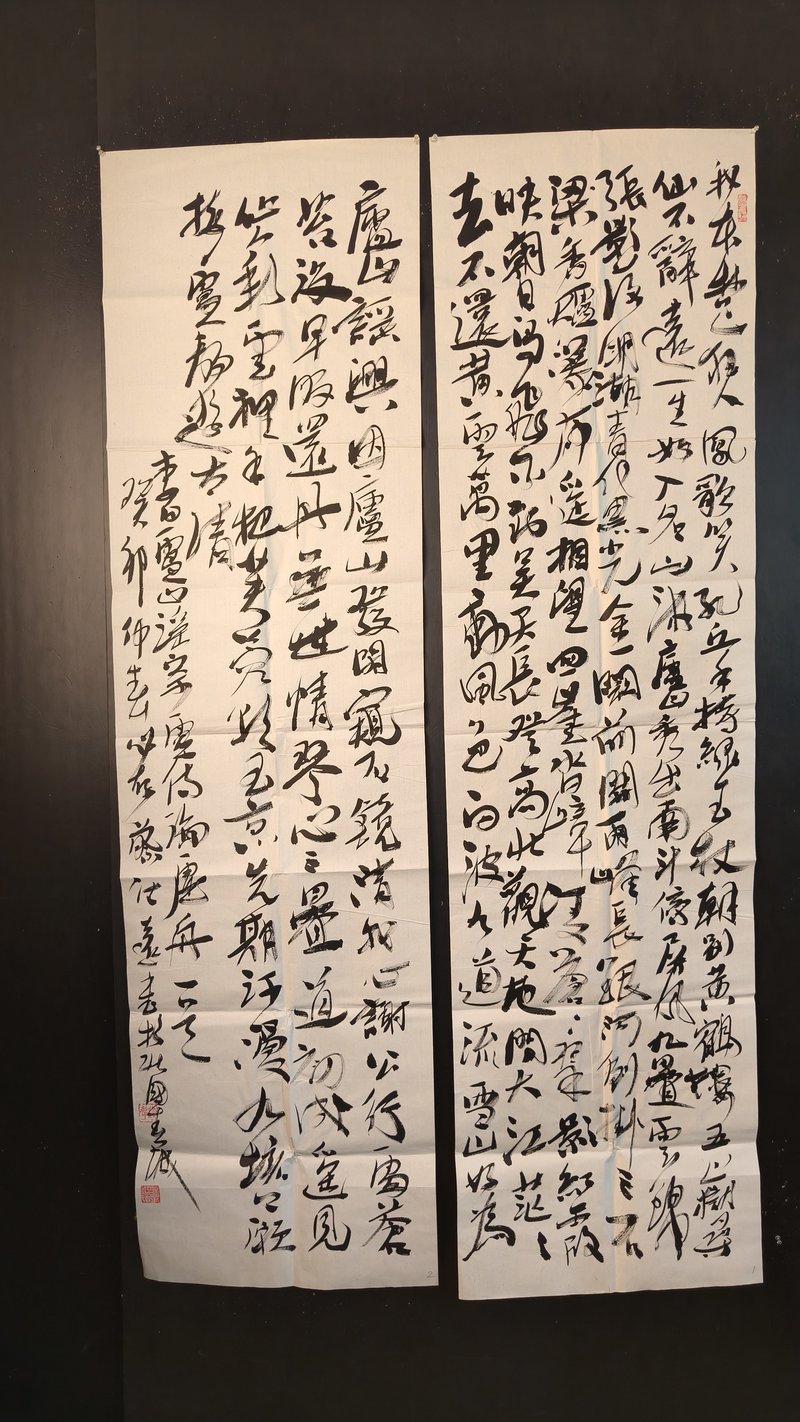 我本楚狂人鳳歌笑孔丘手持綠玉杖朝別黃鶴樓五岳尋
仙不辭遠一生好入名山遊廬山秀出南斗傍屏風九疊雲錦
張影落明湖青黛光金闕前開二峰長銀河倒掛三石
梁香爐瀑布遙相望迴崖沓嶂凌蒼蒼翠影紅霞
映朝日鳥飛不到吳天長登高壯觀天地間大江茫茫
去不還黃雲萬里動風色白波九道流雪山好為
廬山謠興因廬山發閑窺石鏡清我心謝公行處蒼
苔沒早服還丹無世情琴心三疊道初成遙見
仙人彩雲裡手把芙蓉朝玉京先期汗漫九垓上願
接盧敖遊太清
李白廬山謠寄盧侍御虛舟
癸卯仲春
2
1